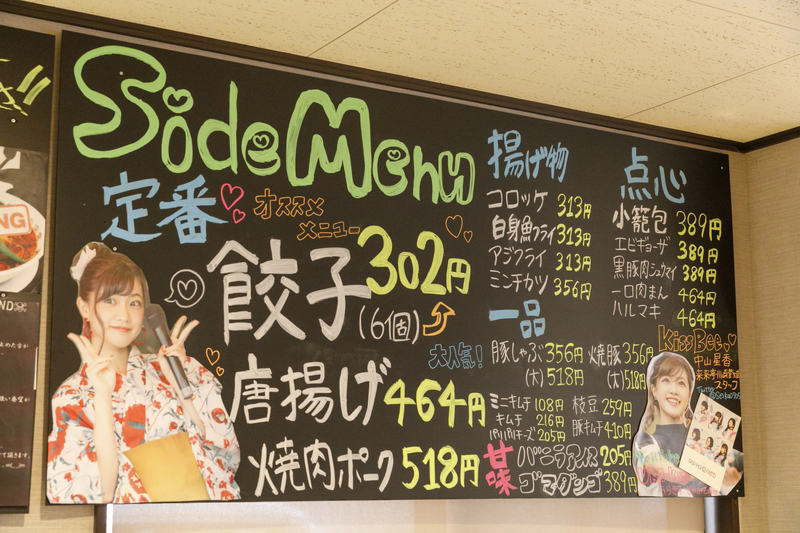 Side Menu
定番
オススメ
メニュー
餃子 302円
(6個)
大人気!
唐揚げ 464円
焼肉ポーク 518円
揚げ物
コロッケ 313円
白身魚フライ 313円
アジフライ 313円
ミンチカツ 356円
一品
豚しゃぶ 356円 焼豚 356円
(大) 518円 (大) 518円
ミニキムチ 108円 枝豆 259円
キムチ 216円 豚キムチ 410円
パリパリチーズ 205円
甘味
バニラアイス 205円
ゴマダンゴ 389円
点心
小籠包 389円
エビギョーザ 389円
黒豚肉シュウマイ 389円
一口肉まん 464円
ハルマキ 464円
KissBee
中山星香
スタッフ
Twitter
NG
ND